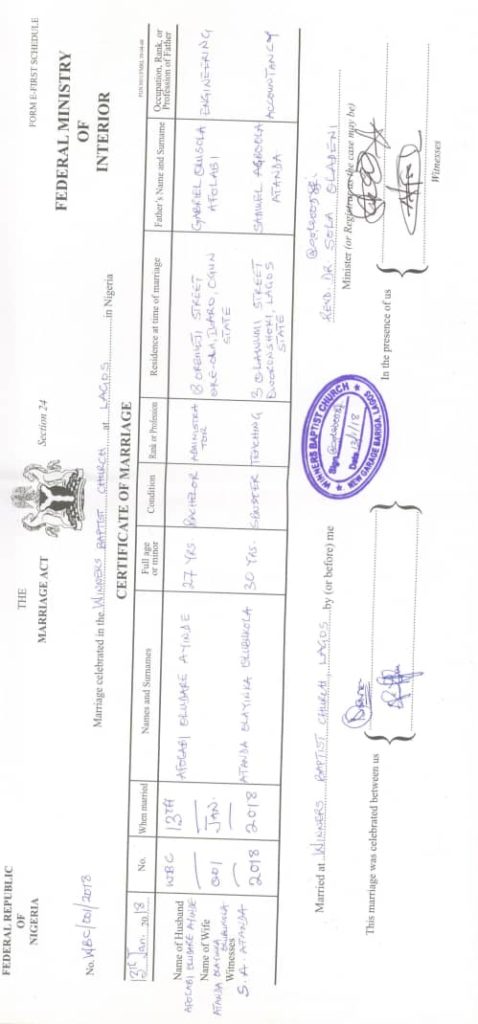 FEDERAL REPUBLIC
OF
NIGERIA
THE
MARRIAGE ACT
Section 24
FORM E-FIRST SCHEDULE
FEDERAL MINISTRY
OF
INTERIOR
No. WBC/001/2018
Marriage celebrated in the WINNERS BAPTIST CHURCH at LAGOS in Nigeria
CERTIFICATE OF MARRIAGE
13TH Jan. 2018
No.
When married
Names and Surnames
Full age or minor
Condition
Rank or Profession
Residence at time of marriage
Father's Name and Surname
Occupation, Rank, or Profession of Father
Name of Husband
AFOLABI OLUBARE AYINDE
Name of Wife
ATANDA OLAYINKA
Witnesses
S. A. ATANDA
WBC
001
2018
13TH
JAN.
2018
AFOLABI OLUBARE AYINDE
27 YRS
BACHELOR
ADMINISTRA
TOR
STREET
STATE
GABRIEL
AFOLABI
ENGINEERING
ATANDA OLAYINKA
30 YRS.
SPINSTER
TEACHING
3 OLANUMI STREET
LAGOS
STATE
SAMUEL AGBOOLA
ATANDA
ACCOUNTANCY
Married at WINNERS BAPTIST CHURCH, LAGOS by (or before) me
REVD. DR. SOLA OLADENI
Minister (or Registrar as the case may be)
WINNERS BAPTIST CHURCH
Sign
Date 13/1/18
NEW GARAGE BARIGA, LAGOS
This marriage was celebrated between us
In the presence of us
Witnesses